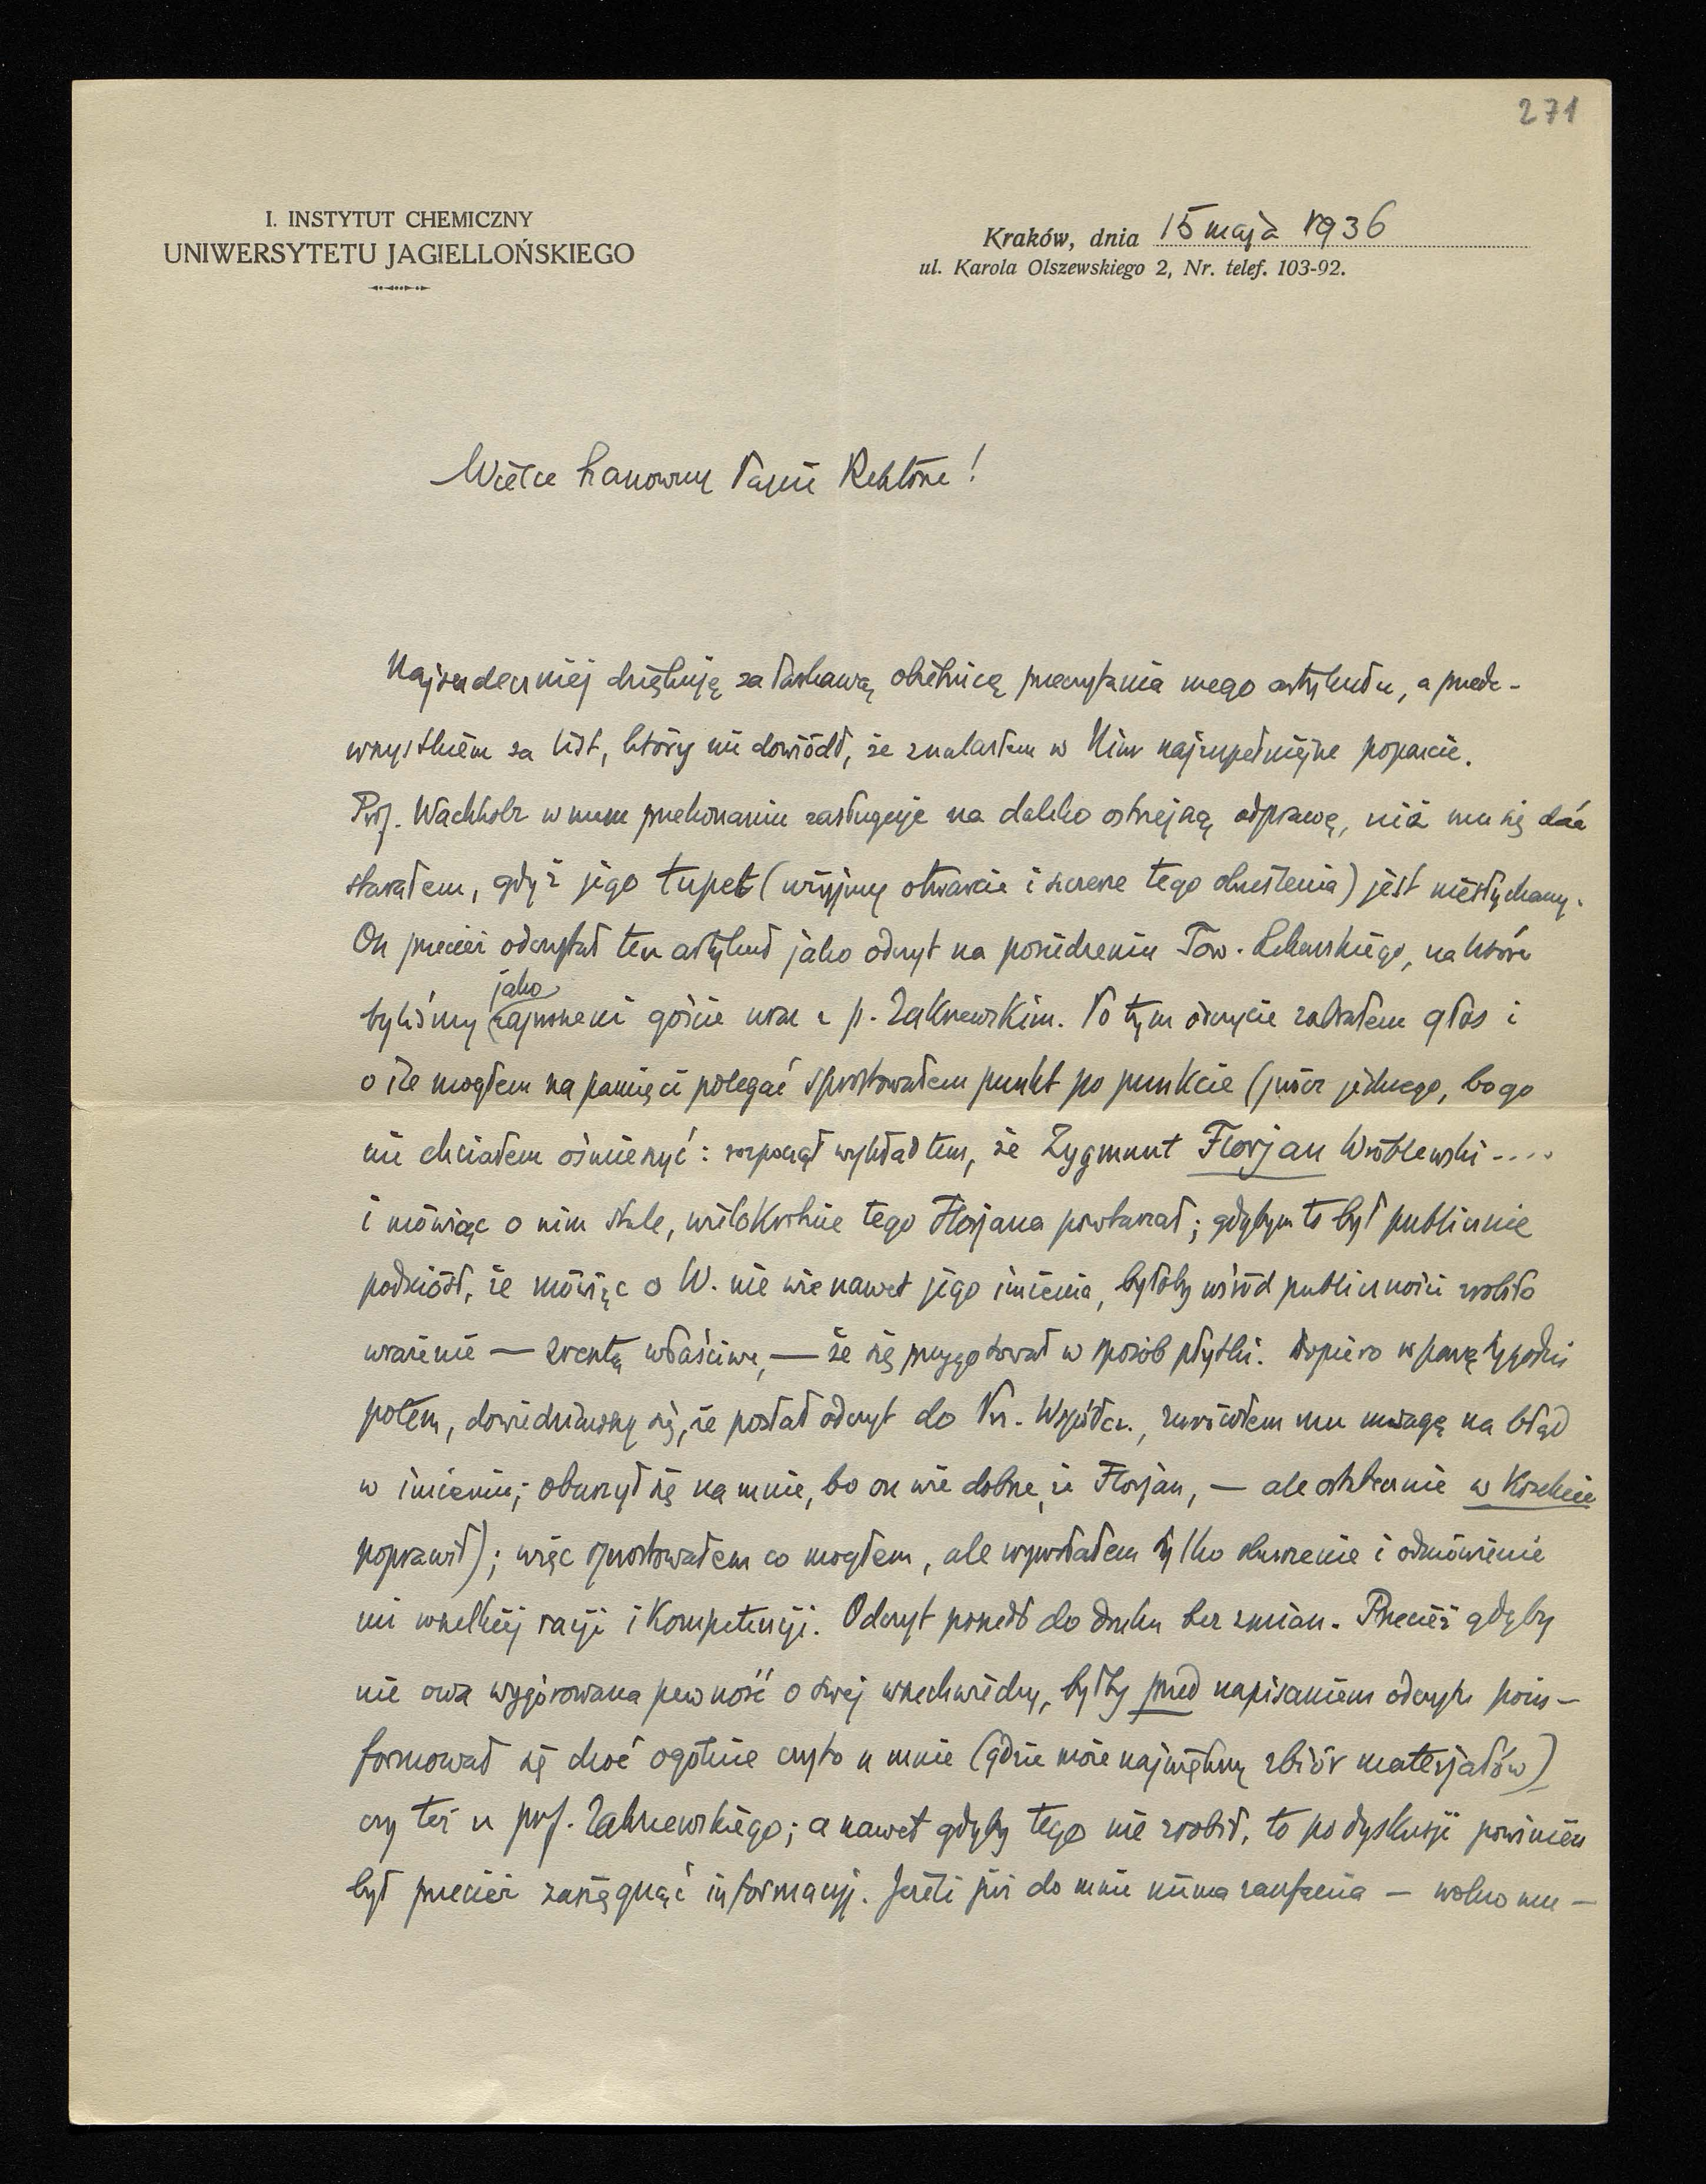 271
I. INSTYTUT CHEMICZNY
UNIWERSYTETU JAGIELLOŃSKIEGO
Kraków, dnia 15 maja 1936
ul. Karola Olszewskiego 2, Nr. telef. 103-92.
Wielce Szanowny Panie Rektorze!
Najserdeczniej dziękuję za łaskawą obietnicę przeczytania mego artykułu, a przede-
wszystkiem za list, który mi dowiódł, że znalazłem w Nim najzupełniejsze poparcie.
Prof. Wachholz w mem przekonaniu zasługuje na daleko ostrzejszą odprawę, niż mu się dać
starałem, gdyż jego tupet (użyjmy otwarcie i szczerze tego określenia) jest niesłychany.
On przecież odczytał ten artykuł jako odczyt na posiedzeniu Tow. Lekarskiego, na które
byliśmy jako zaproszeni goście wraz z p. Zakrzewskim. Po tym odczycie zabrałem głos i
o ile mogłem na pamięci polegać sprostowałem punkt po punkcie (prócz jednego, bo go
nie chciałem ośmieszyć: rozpoczął wykład tem, że Zygmunt Florjan Wróblewski....
i mówiąc o nim stale, wielokrotnie tego Florjana powtarzał; gdybym to był publicznie
podniósł, że mówiąc o W. nie wie nawet jego imienia, byłoby wśród publiczności zrobiło
wrażenie — zresztą właściwe, — że się przygotował w sposób płytki. Dopiero w parę tygodni
potem, dowiedziawszy się, że posłał odczyt do Prz. Współcz., zwróciłem mu uwagę na błąd
w imieniu; oburzył się na mnie, bo on wie dobrze, że Florjan, — ale ostatecznie w korekcie
poprawił); więc sprostowałem co mogłem, ale wywołałem tylko oburzenie i odmówienie
mi wszelkiej racji i kompetencji. Odczyt poszedł do druku bez zmian. Przecież gdyby
nie owa wygórowana pewność o swej wszechwiedzy, byłby przed napisaniem odczytu poin-
formował się choć ogólnie czyto u mnie (gdzie może największy zbiór materjałów)
czy też u prof. Zakrzewskiego; a nawet gdyby tego nie zrobił, to po dyskusji powinien
był przecież zasięgnąć informacyj. Jeżeli już do mnie niema zaufania — wolno mu —